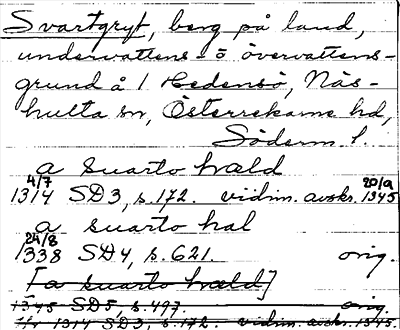 Svartgryt, berg på land,
undervattens- o övervattens-
grund å / Hedensö, Näs-
hulta sn, Österrekarne hd,
Söderm. l.
a suarto hæld
4/7 20/9
1314 SD3, s. 172. vidim. avskr. 1345
a suarto hal
24/8
1338 SD4, s. 621. orig.
[a suarto hæld]
1345 SD5, s. 497. orig.
4/7 1314 SD3, s. 172. vidim. avskr. 1345.